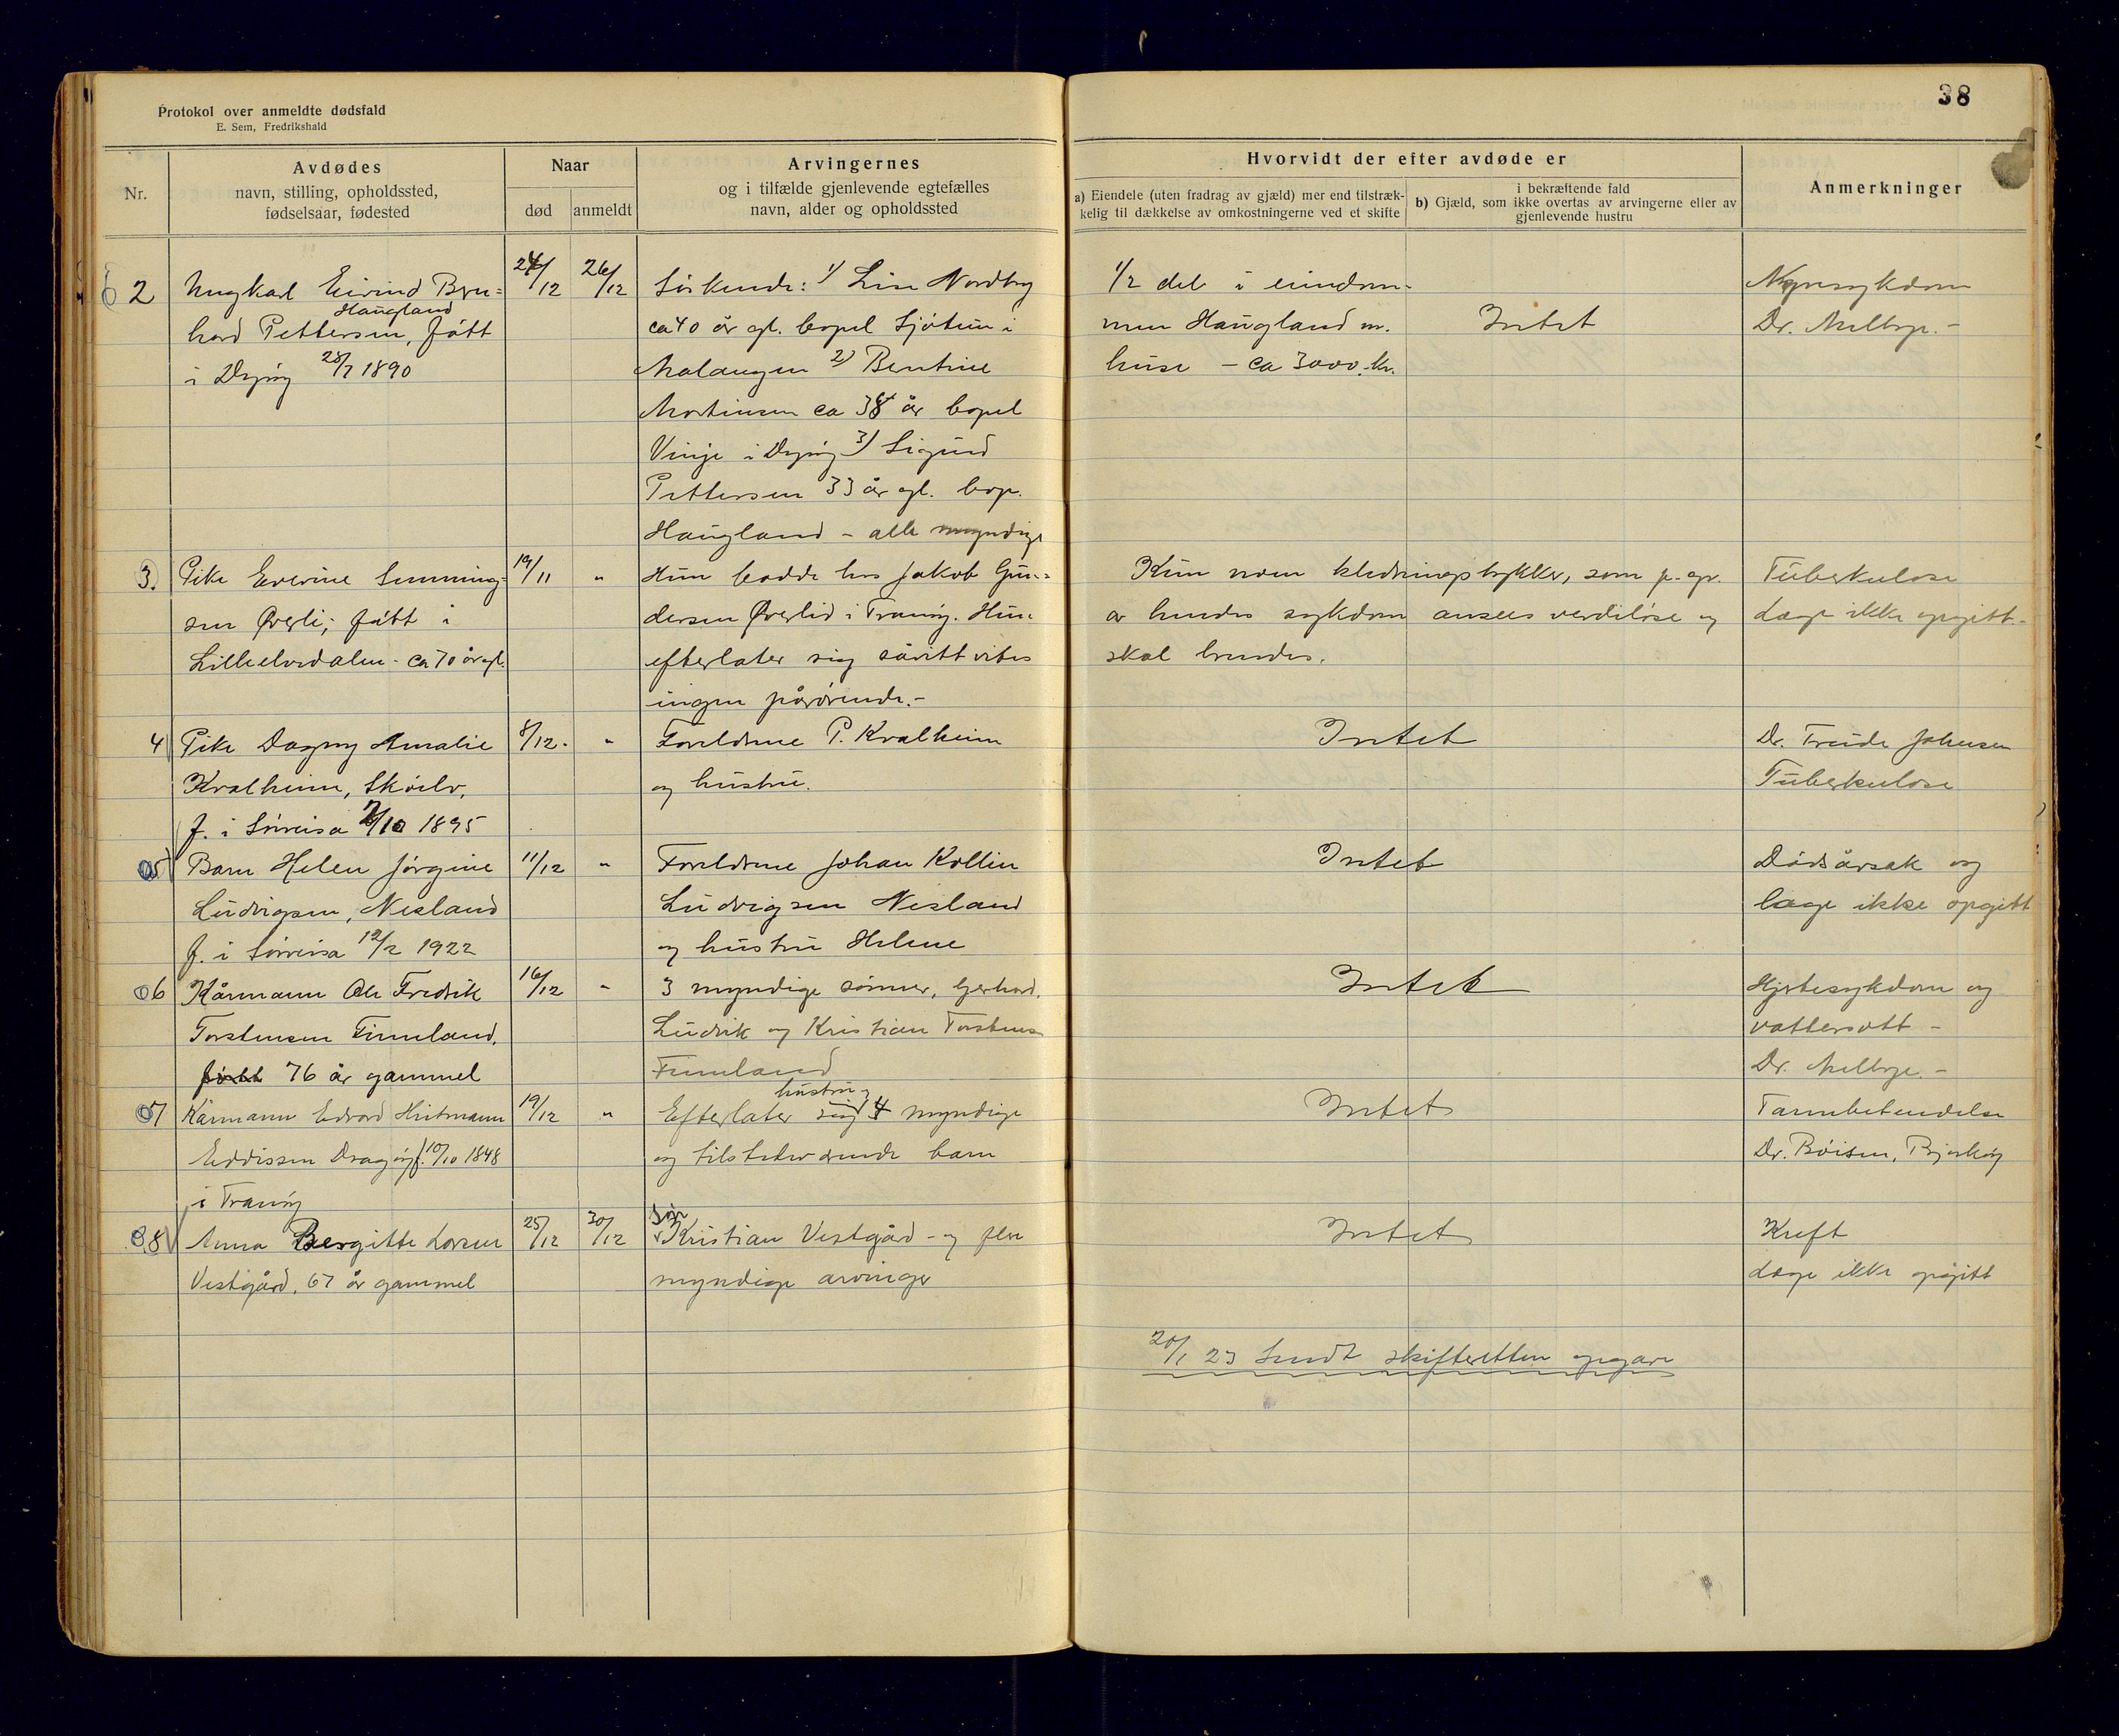 Protokol over anmeldte dødsfald
E. Sem, Fredrikshald
38
Nr.
Avdødes
navn, stilling, opholdssted,
fødselsaar, fødested
Naar
død
anmeldt
Arvingernes
og i tilfælde gjenlevende egtefælles
navn, alder og opholdssted
Hvorvidt der efter avdøde er
a) Eiendele (uten fradrag av gjæld) mer end tilstræk-
kelig til dækkelse av omkostningerne ved et skifte
i bekræftende fald
b) Gjæld, som ikke overtas av arvingerne eller av
gjenlevende hustru
Anmerkninger
2
Ungkarl Eivind Bern=
Haugland
hard Pettersen, født
i Dyrøy 28/7 1890
24/12
26/12
Søskende: 1/ Lise Nordby
ca 40 år gl. bopel Sjøtun i
Malangen 2) Bentine
Mortinsen ca 38 år bopel
Vinje i Dyrøy 3) Sigurd
Pettersen 33 år gl. bop.
Haugland - alle myndige
1/2 del i eiendom-
men Haugland m.
huse - ca 3000.kr.
Intet
Nyresykdom
Dr. Melbye.-
3.
Pike Everine Simming=
sen Øverli; født i
Lilleelvdalen - ca 70 år gl.
19/11
"
Hun bodde hos Jakob Gun=
dersen Øverlid i Tranøy. Hun
efterlater sig såvitt vites
ingen pårørende.-
Kun noen klædningstykker, som p. gr.
av hendes sykdom ansees verdiløse og
skal brendes.
Tuberkulose
Læge ikke opgitt.-
4
Pike Dagny Amalie
Kvalheim, Skøelv,
f. i Sørreisa 7/10 1895
8/12.
"
Foreldrene P. Kvalheim
og hustru.
Intet
Dr. Trude Johnsen
Tuberkulose
5
Barn Helen Jørgine
Ludvigsen, Nesland
f. i Sørreisa 12/2 1922
11/12
"
Foreldrene Johan Kollin
Ludvigsen Nesland
og hustru Helene
Intet
Dødsårsak og
læge ikke opgitt
6
Kårmann Ole Fredrik
Torstensen Finnland.
født 76 år gammel
16/12
"
3 myndige sønner, Gerhard,
Ludvik og Kristian Torstensen
Finnland
Intet
Hjertesykdom og
vattersott -
Dr. Melbye.-
7
Kårmann Edvard Hiitmann
Eddissen Dragøy f. 10/10 1848
i Tranøy
19/12
"
hustru og
Efterlater sig 4 myndige
og tilstedeværende barn
Intet
Tarmbetendelse
Dr. Bøisen, Bjarkøy
8
Anna Bergitte Larsen
Vestgård, 67 år gammel
25/12
30/12
Søn
Kristian Vestgård - og flere
myndige arvinger
Intet
Kreft
Læge ikke opgitt
20/1 23 Sendt skifteretten opgave